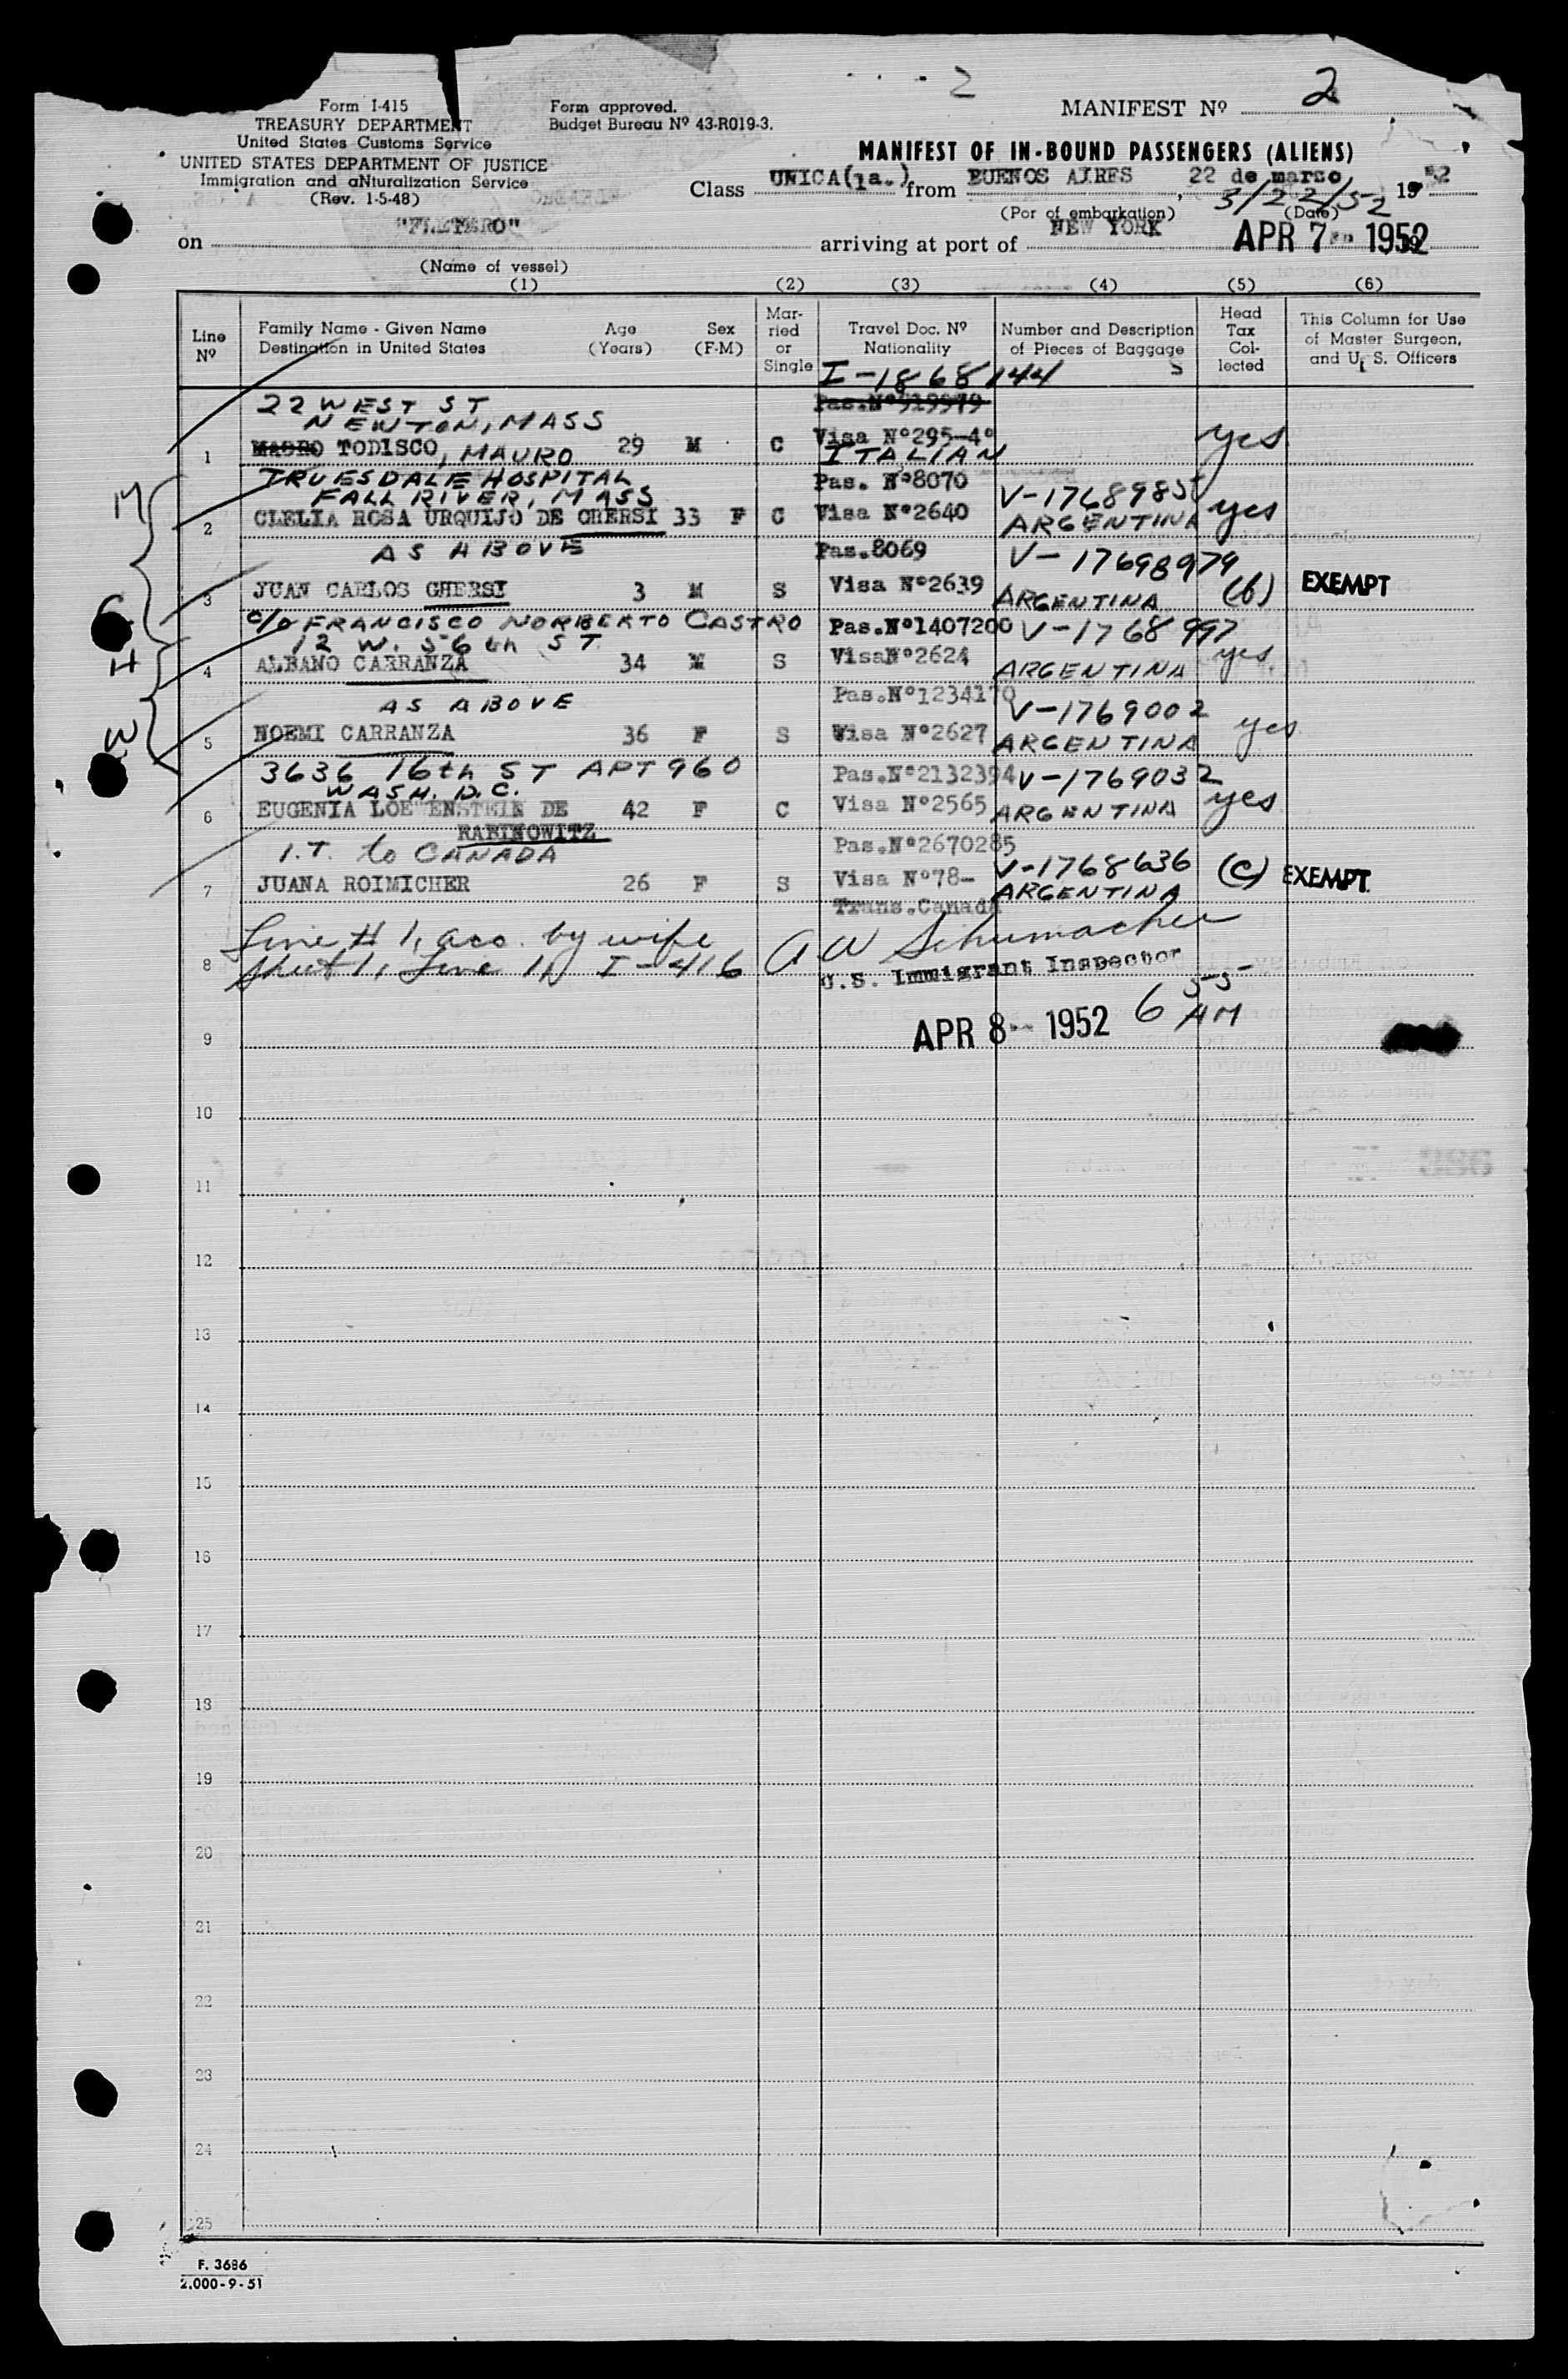 2
MANIFEST Nº 2
Form I-415
TREASURY DEPARTMENT
United States Customs Service
UNITED STATES DEPARTMENT OF JUSTICE
Immigration and aNturalization Service
(Rev. 1-5-48)
Form approved.
Budget Bureau Nº 43-R019-3.
MANIFEST OF IN-BOUND PASSENGERS (ALIENS)
Class UNICA(1a.) from BUENOS AIRES, 22 de marzo 1952
3/22/52
(Por of embarkation) (Date)
on "FLETERO" arriving at port of NEW YORK APR 7 1952
(Name of vessel)
(1) (2) (3) (4) (5) (6)
Line Nº
Family Name - Given Name Age Sex
Destination in United States (Years) (F-M)
Mar-
ried
or
Single
Travel Doc. Nº
Nationality
Number and Description
of Pieces of Baggage
S
Head
Tax
Col-
lected
This Column for Use
of Master Surgeon,
and U. S. Officers
I-1868144
22 WEST ST Pas.Nº519579
NEWTON, MASS
1 MAURO TODISCO, MAURO 29 M C Visa Nº295-4º yes
ITALIAN
TRUESDALE HOSPITAL Pas. Nº8070 V-1768985
FALL RIVER, MASS
2 CLELIA ROSA URQUIJO DE GHERSI 33 F C Visa Nº2640 ARGENTINA yes
AS ABOVE Pas.8069 V-17698979
3 JUAN CARLOS GHERSI 3 M S Visa Nº2639 ARGENTINA (b) EXEMPT
c/o FRANCISCO NORIBERTO CASTRO Pas.Nº1407200 V-1768997
12 W. 56th ST.
4 ALBANO CARRANZA 34 M S VisaNº2624 ARGENTINA yes
AS ABOVE Pas.Nº1234170 V-1769002
5 NOEMI CARRANZA 36 F S Visa Nº2627 ARGENTINA yes
3636 16th ST APT 960 Pas.Nº2132394 V-1769032
WASH. D.C.
6 EUGENIA LOE ENSTEIN DE 42 F C Visa Nº2565 ARGENTINA yes
RABINOWITZ
I.T. to CANADA Pas.Nº2670285 V-1768636
7 JUANA ROIMICHER 26 F S Visa Nº78- ARGENTINA (c) EXEMPT
Trans.Canada
Line # 1, acc. by wife
8 Sheet 1, Line 1, I-416 A W Schumacher
U.S. Immigrant Inspector
APR 8 1952 6 55 AM
9
10
11
12
13
14
15
16
17
18
19
20
21
22
23
24
25
F. 3686
2.000-9-51